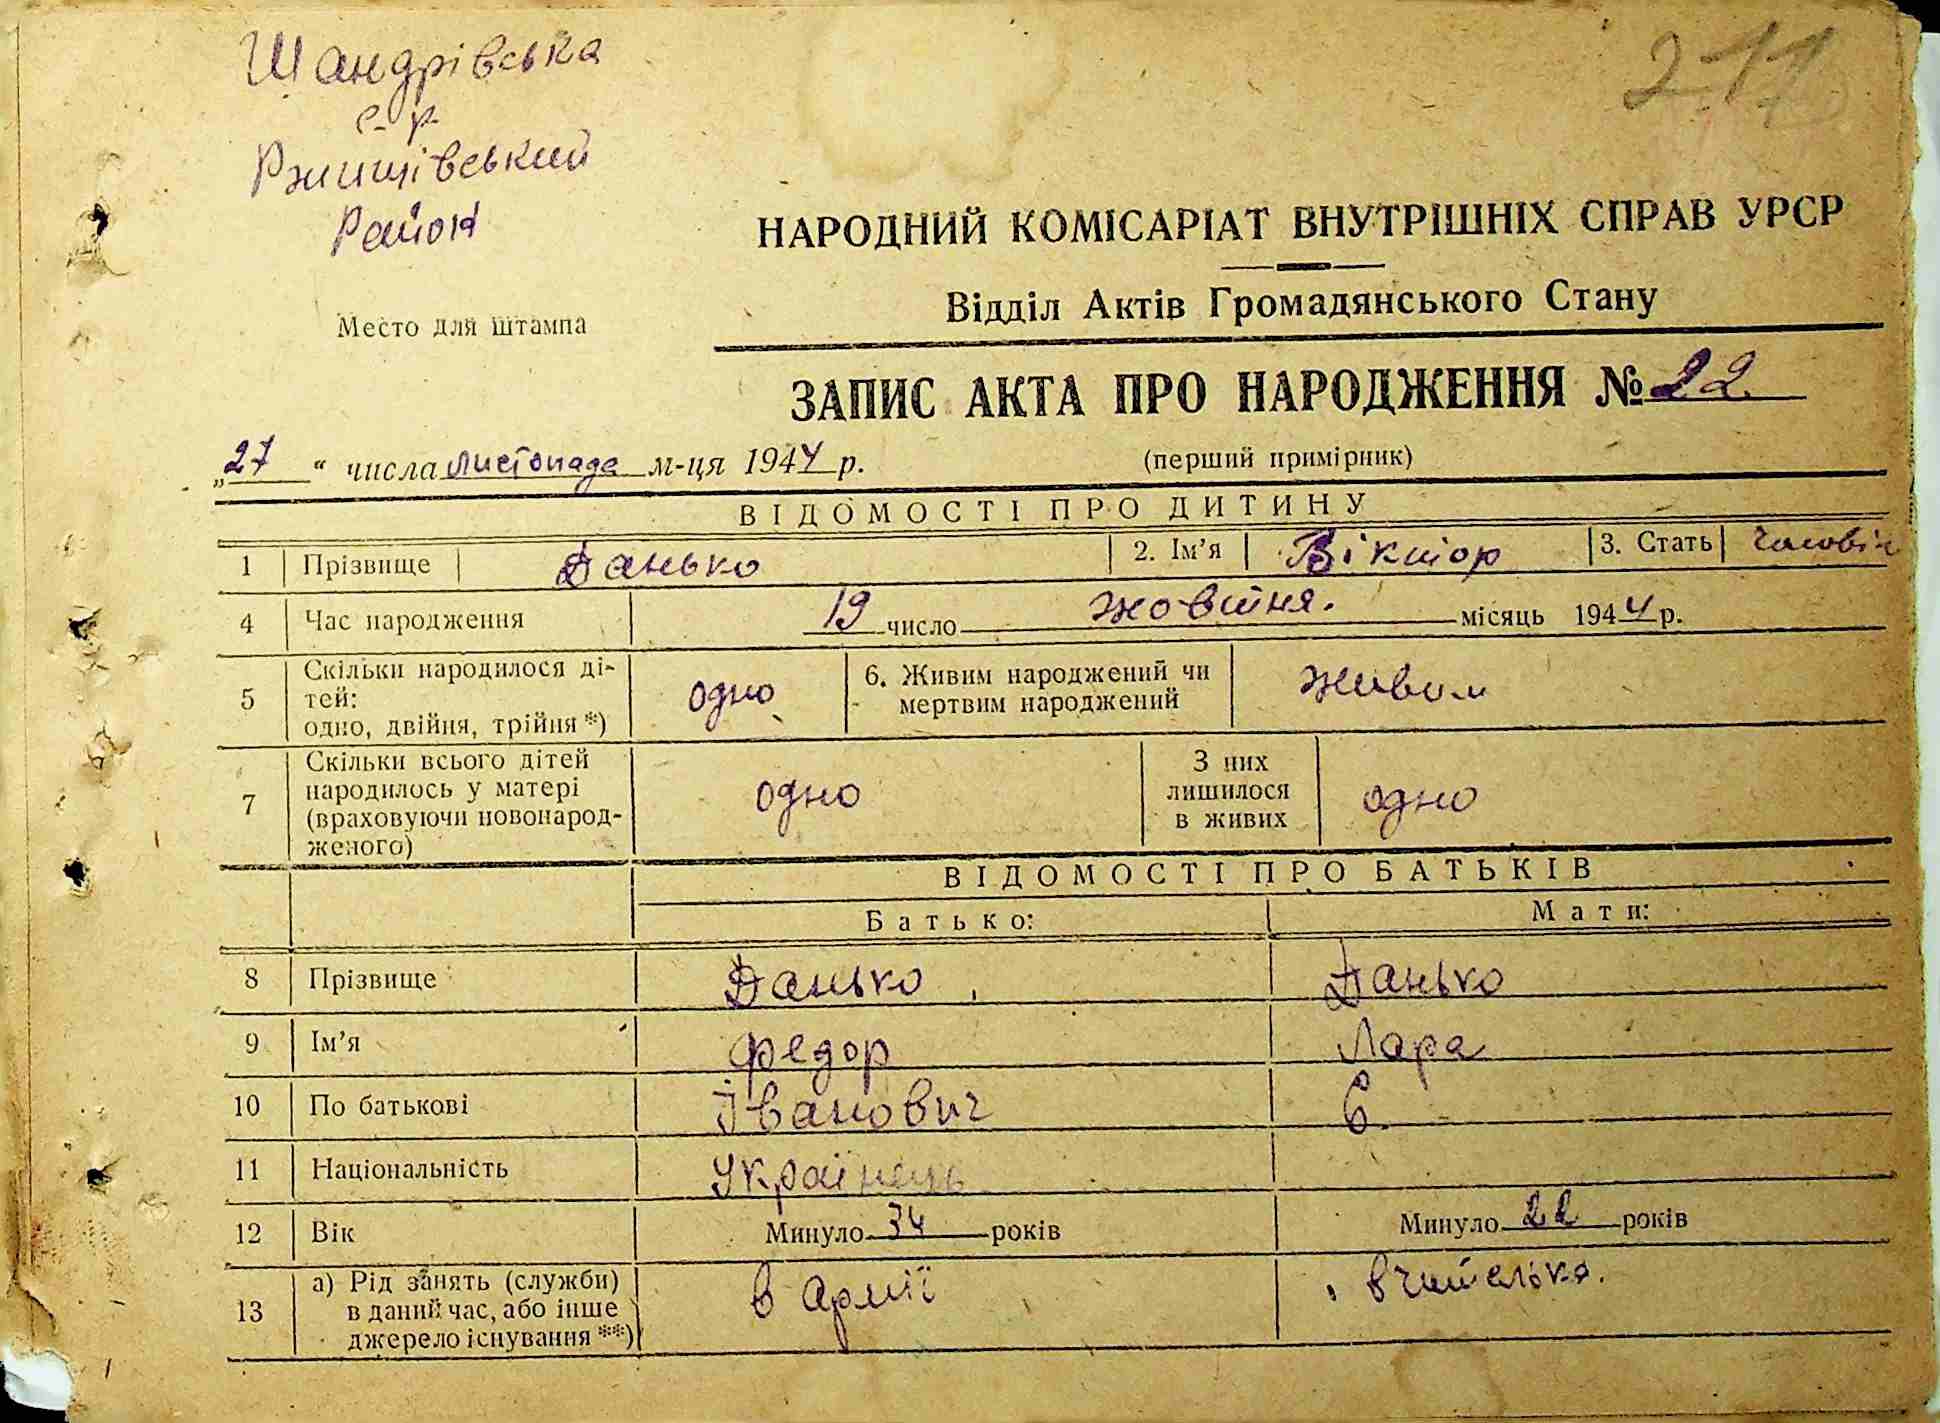 Шандрівська
с. р.
Ржищівський
Район
211
НАРОДНИЙ КОМІСАРІАТ ВНУТРІШНІХ СПРАВ УРСР
Відділ Актів Громадянського Стану
Место для штампа
ЗАПИС АКТА ПРО НАРОДЖЕННЯ № 22.
„27“ числа листопада м-ця 1944 р.
(перший примірник)
ВІДОМОСТІ ПРО ДИТИНУ
1 Прізвище Данько 2. Ім’я Віктор 3. Стать
4 Час народження 19 число жовтня. місяць 1944 р.
5 Скільки народилося ді-
тей:
одно, двійня, трійня *) одно 6. Живим народжений чи
мертвим народжений живим
7 Скільки всього дітей
народилось у матері
(враховуючи новонарод-
женого) одно З них
лишилося
в живих одно
ВІДОМОСТІ ПРО БАТЬКІВ
Батько: Мати:
8 Прізвище Данько Данько
9 Ім’я Федор Лара
10 По батькові Іванович Є.
11 Національність Українець
12 Вік Минуло 34 років Минуло 22 років
13 а) Рід занять (служби)
в даний час, або інше
джерело існування **) в Армії вчителька.